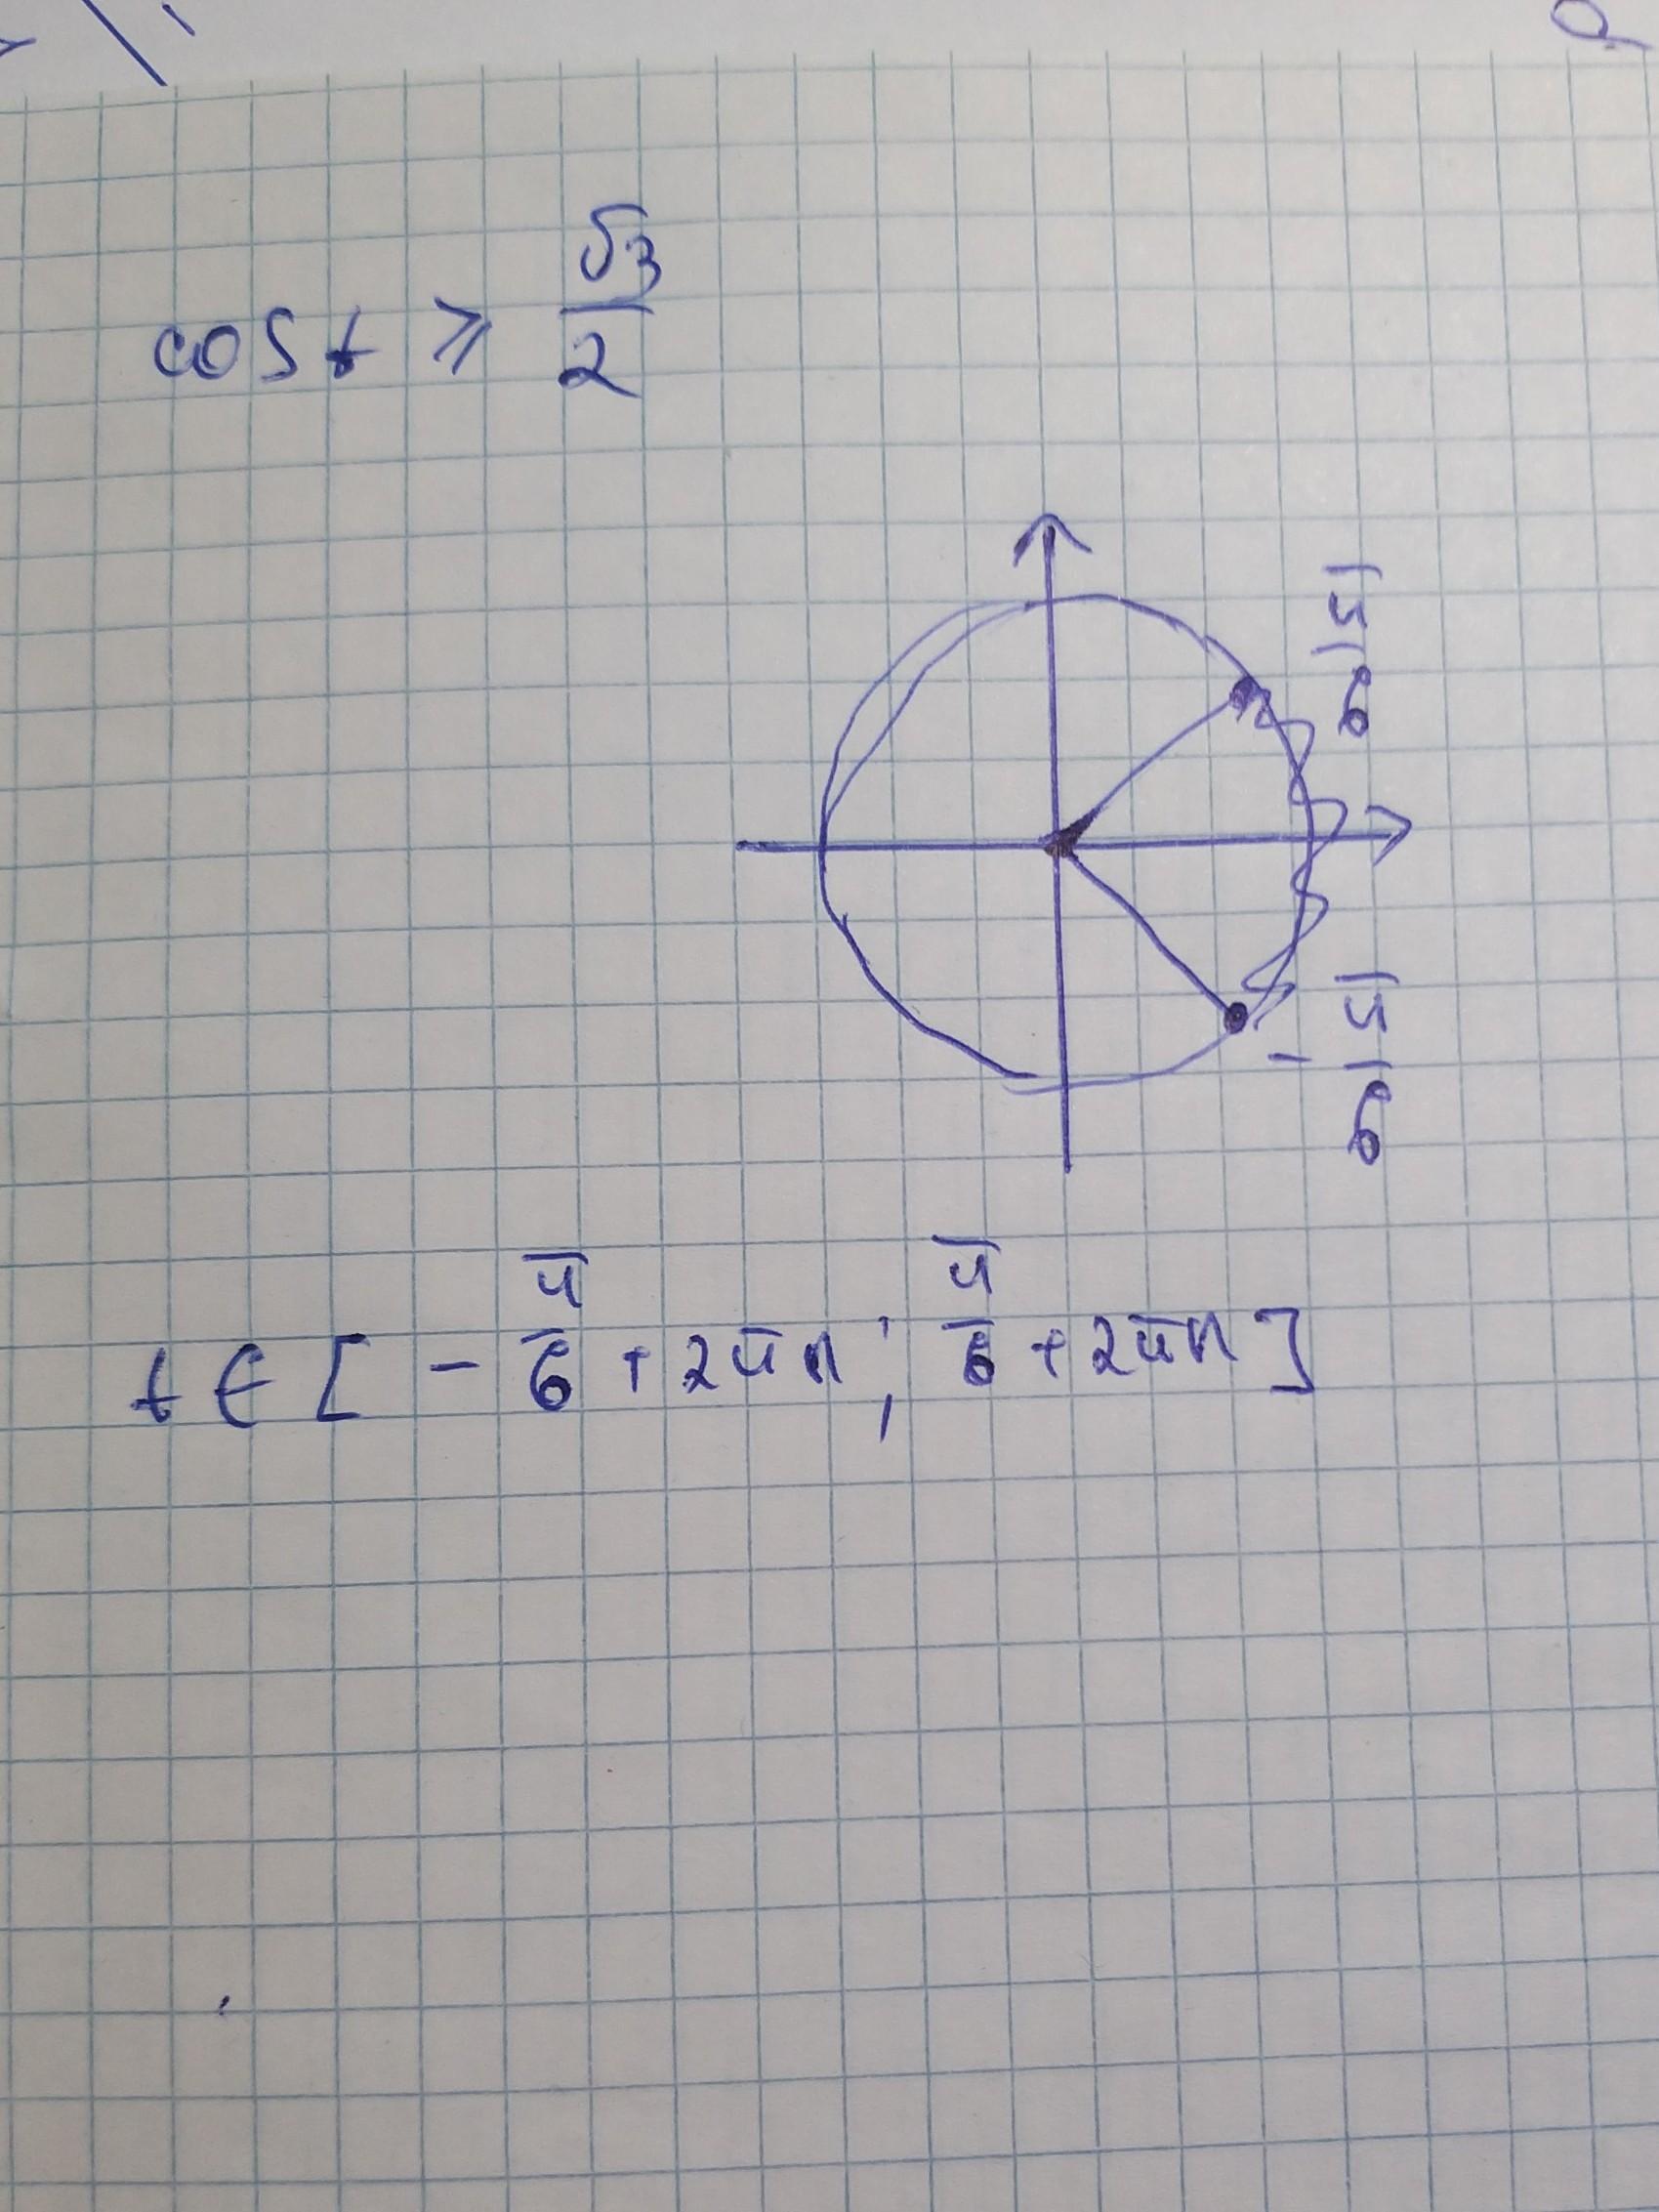 cos t ⩾ √3/2
π/6
-π/6
t ∈ [ - π/6 + 2πn ; π/6 + 2πn ]